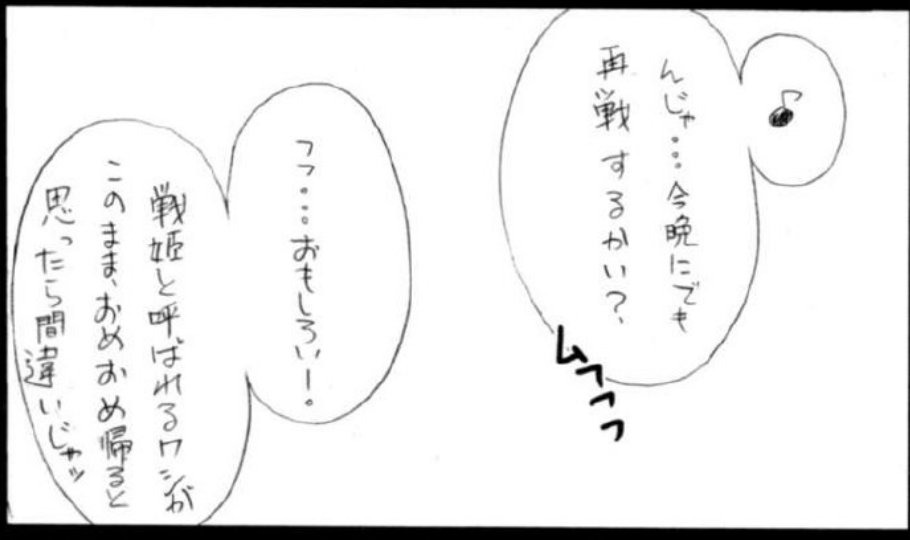 ♪
んじゃ…今晩にでも
再戦するかい?
ムフフフ
フフ…おもしろい!。
戦姫と呼ばれるワシが
このまま、おめおめ帰ると
思ったら間違いじゃッ